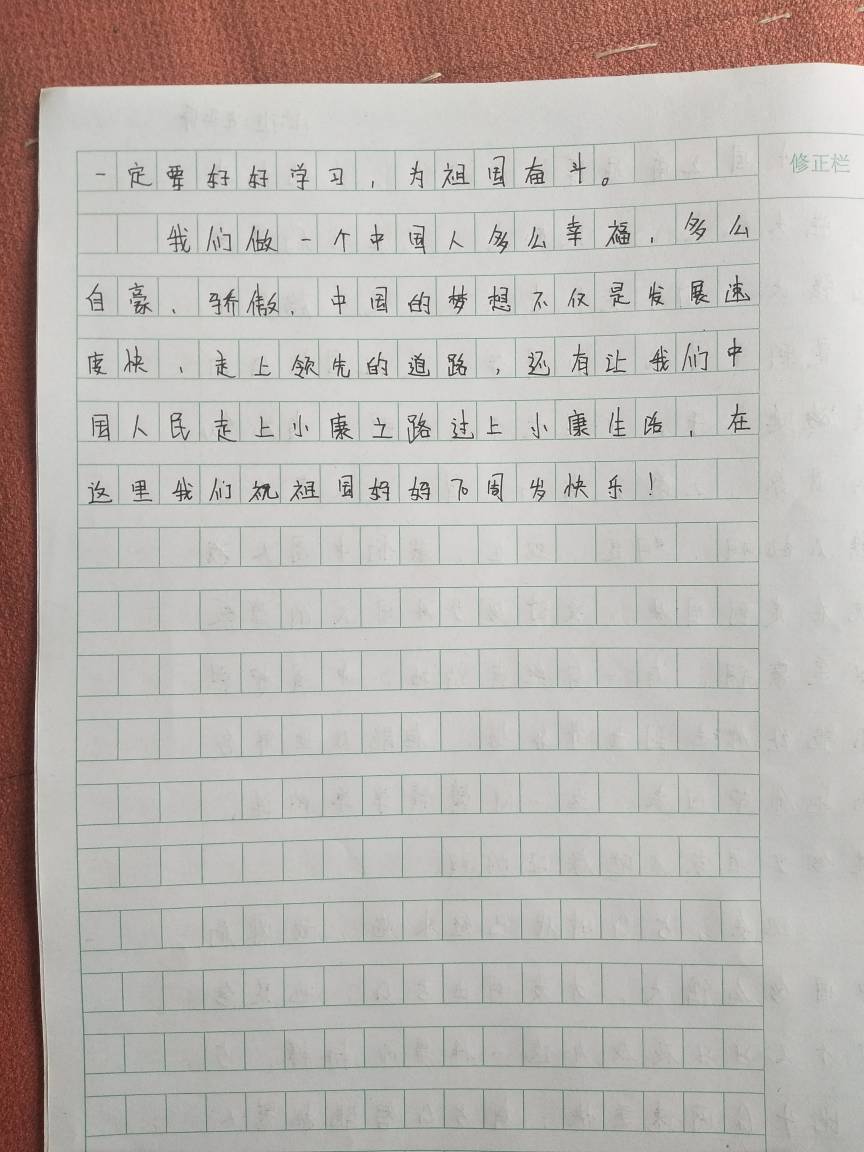 一定要好好学习，为祖国奋斗。
修正栏
我们做一个中国人多么幸福，多么
自豪、骄傲，中国的梦想不仅是发展速
度快、走上领先的道路，还有让我们中
国人民走上小康之路过上小康生活，在
这里我们祝祖国妈妈70周岁快乐！